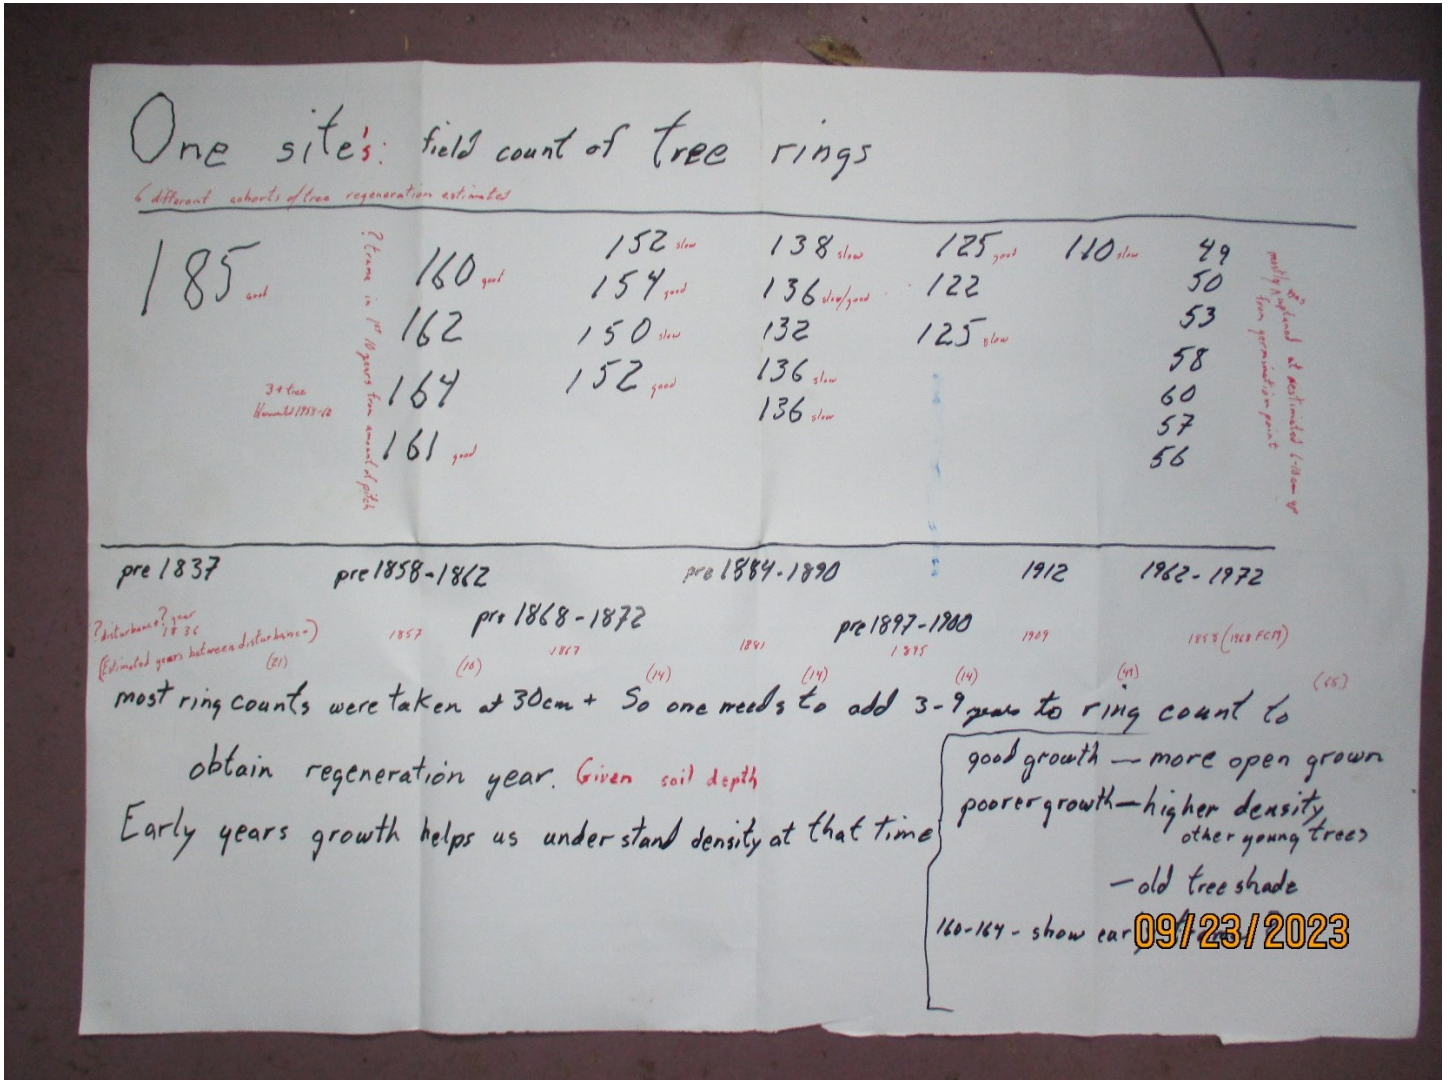 One site's: field count of tree rings
6 different cohorts of tree regeneration estimated
185 good
? trama in 1st 10 years from amount of pitch
3+ tree
160 good
162
164
161 good
152 slow
154 good
150 slow
152 good
138 slow
136 slow/good
132
136 slow
136 slow
125 good
122
125 slow
110 slow
49
50
53
58
60
57
56
mostly at estimated 6-10cm up
from germination point
pre 1837
pre 1858-1862
pre 1868-1872
pre 1884-1890
pre 1897-1900
1912
1962-1972
?disturbance? year
1836
1857
1867
1881
1895
1909
1858 (1968 FCM)
(Estimated years between disturbance)
(21)
(10)
(14)
(14)
(14)
(49)
most ring counts were taken at 30cm + So one needs to add 3-9 years to ring count to
obtain regeneration year. Given soil depth
Early years growth helps us understand density at that time
good growth — more open grown
poorer growth — higher density
other young trees
— old tree shade
160-164 - show
09/23/2023